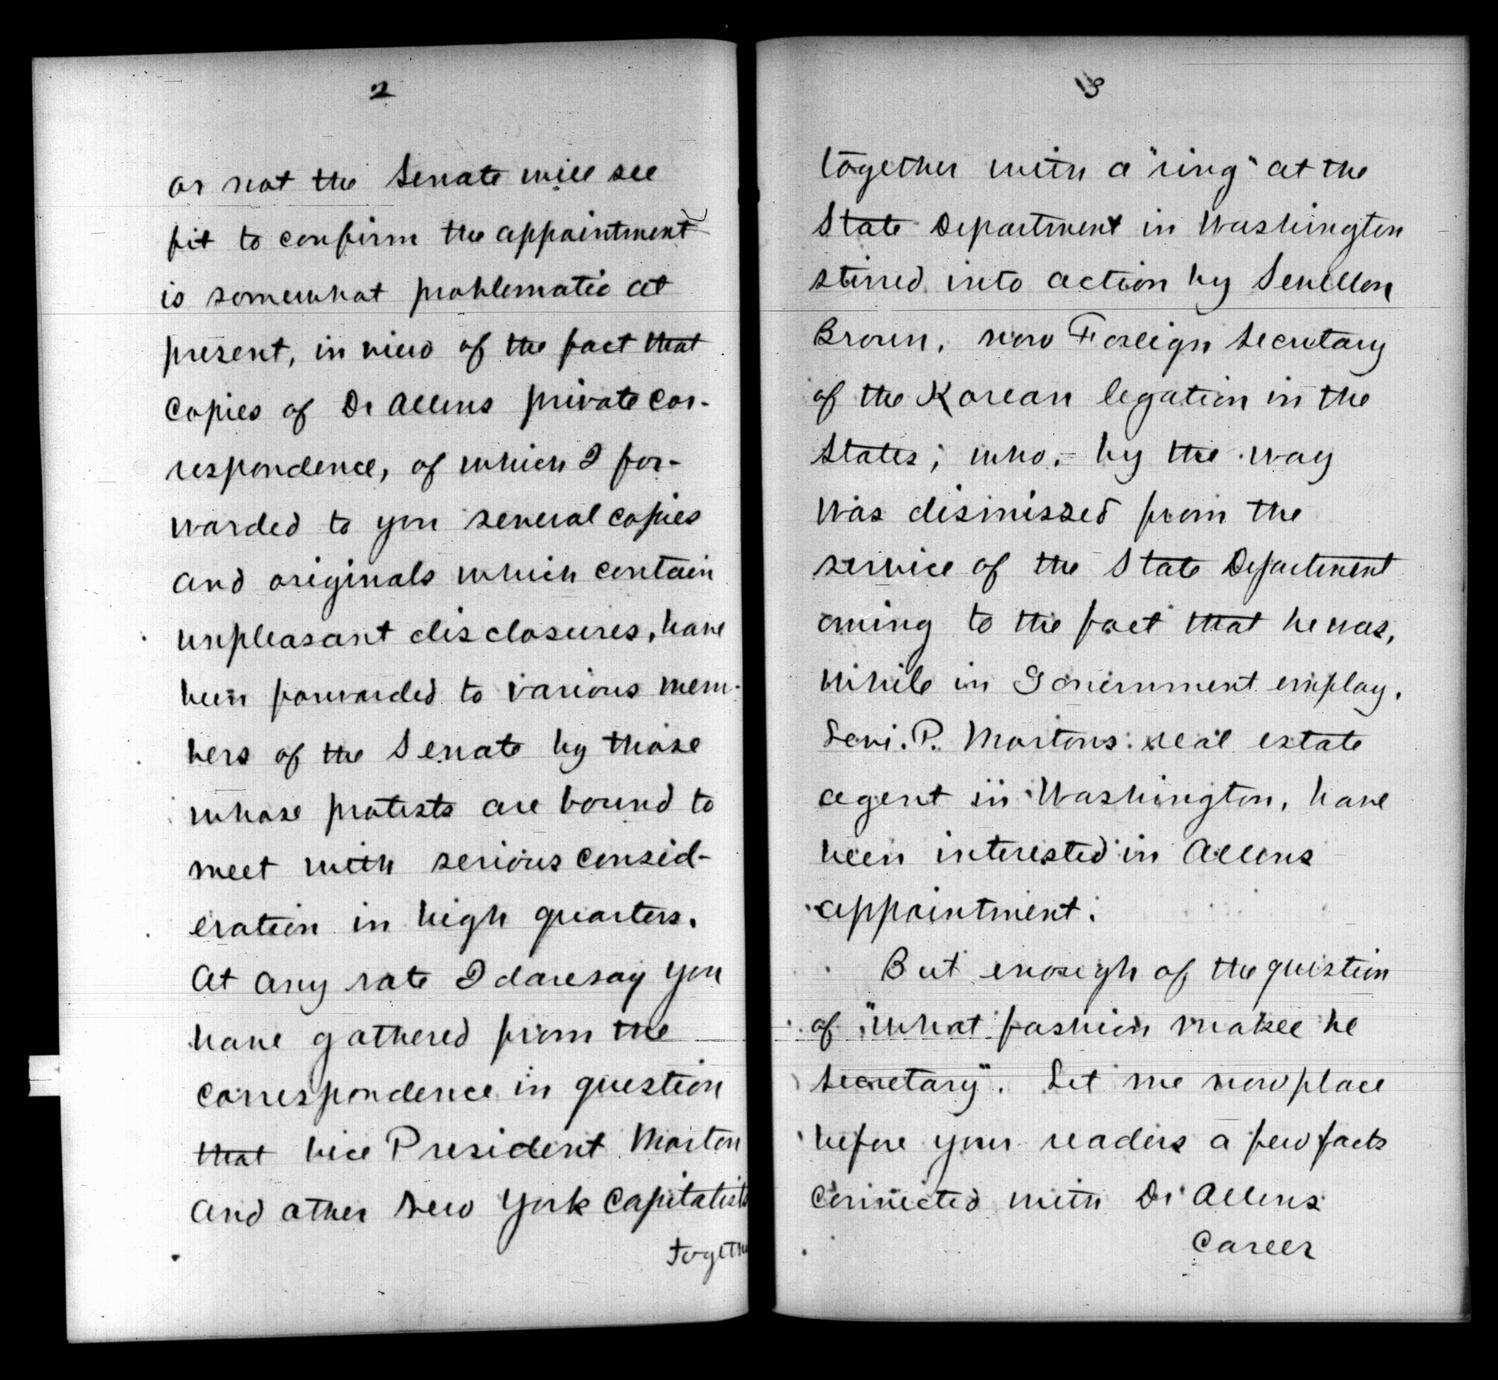 2
or not the Senate will see
fit to confirm the appointment
is somewhat problematic at
present, in view of the fact that
copies of Dr Allens private cor-
respondence, of which I for-
warded to you several copies
and originals which contain
unpleasant disclosures, have
been forwarded to various mem-
bers of the Senate by those
whose protests are bound to
meet with serious consid-
eration in high quarters.
At any rate I daresay you
have gathered from the
correspondence in question
that Vice President Morton
and other New York Capitalists
together
3
together with a "ring" at the
State Department in Washington
stirred into action by Sevellon
Brown, now Foreign Secretary
of the Korean legation in the
States; who, - by the way
was dismissed from the
service of the State Department
owing to the fact that he was,
while in Government employ,
Levi. P. Mortons real estate
agent in Washington, have
been interested in Allens
appointment.
But enough of the question
of "what fashion makee he
secretary". Let me now place
before your readers a few facts
connected with Dr Allens
Career